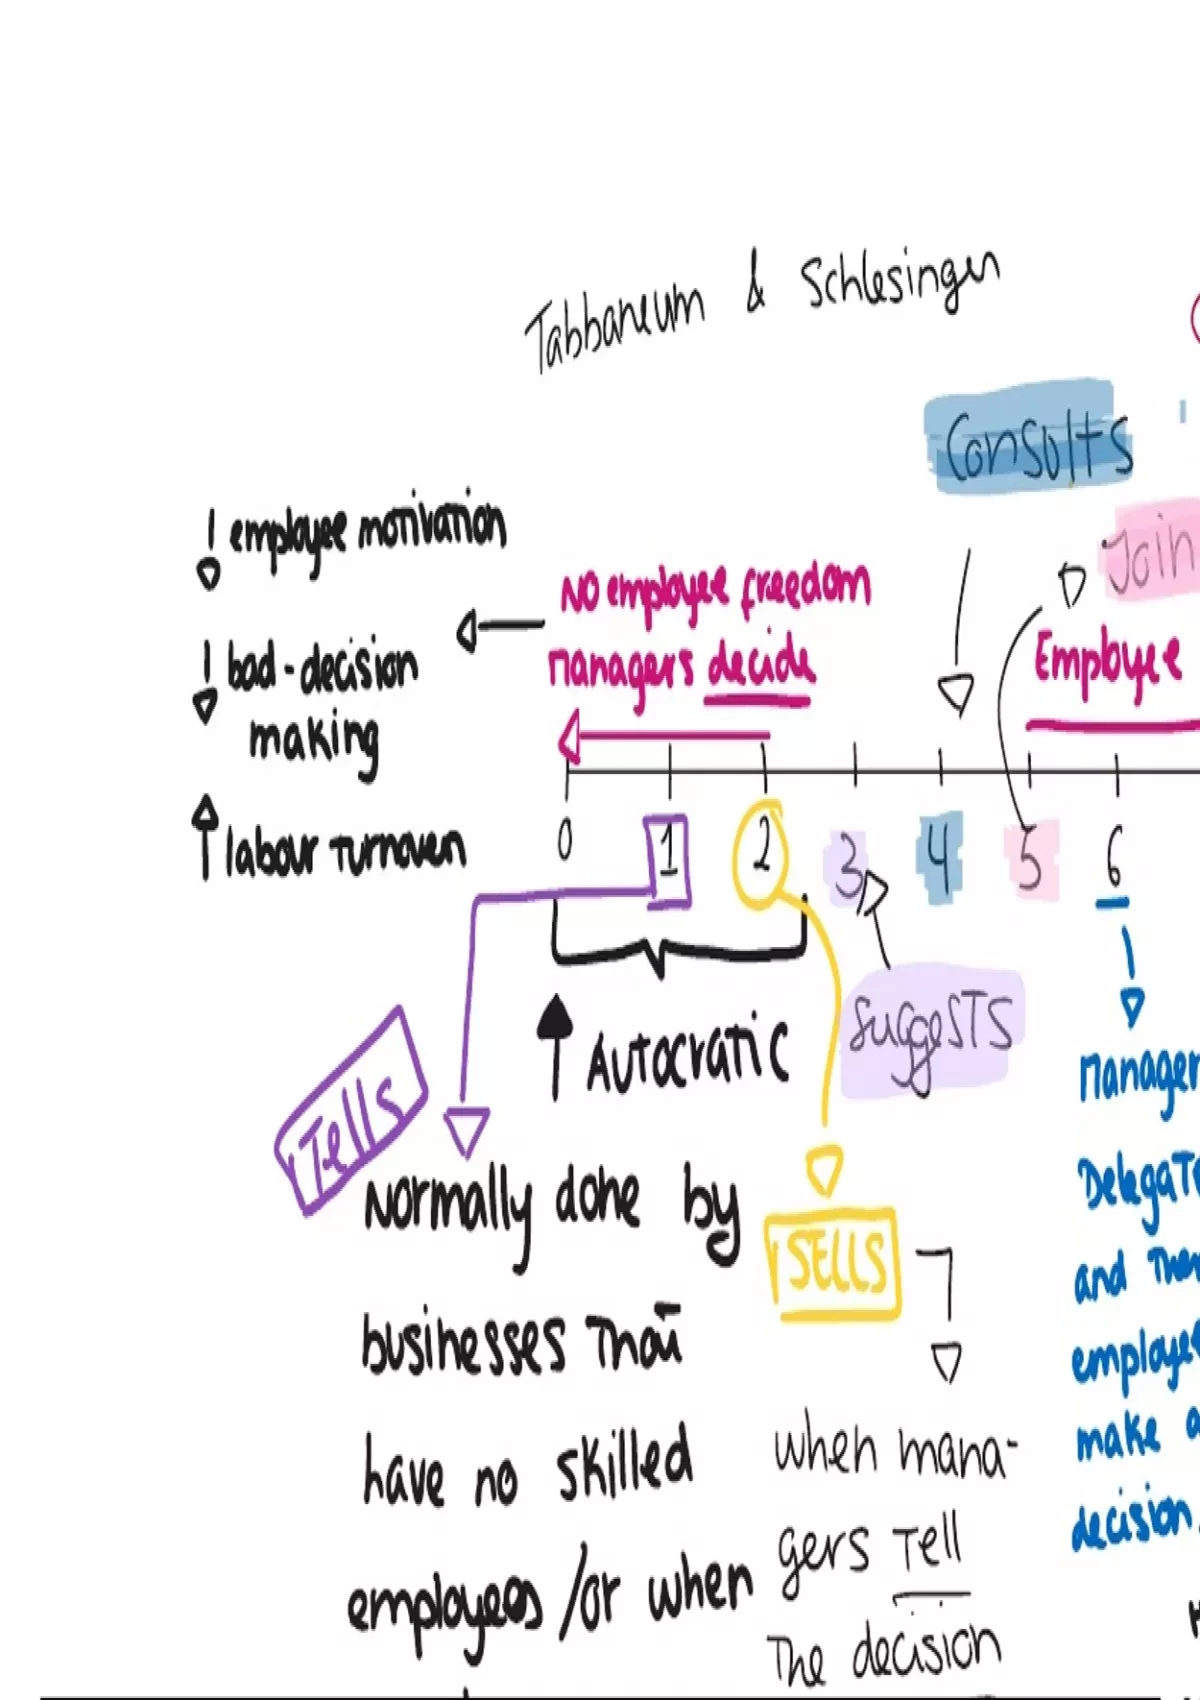 Tabbaneum & Schlesinger
Consults
employee motivation
Join
NO employee freedom
managers decide
Employee
bad-decision
making
labour turnover
0 1 2 3 4 5 6
suggests
Autocratic
Tells
Manager
Normally done by
SELLS
and
businesses that
employee
have no skilled
when mana-
make a
gers Tell
decision.
employees /or when
The decision